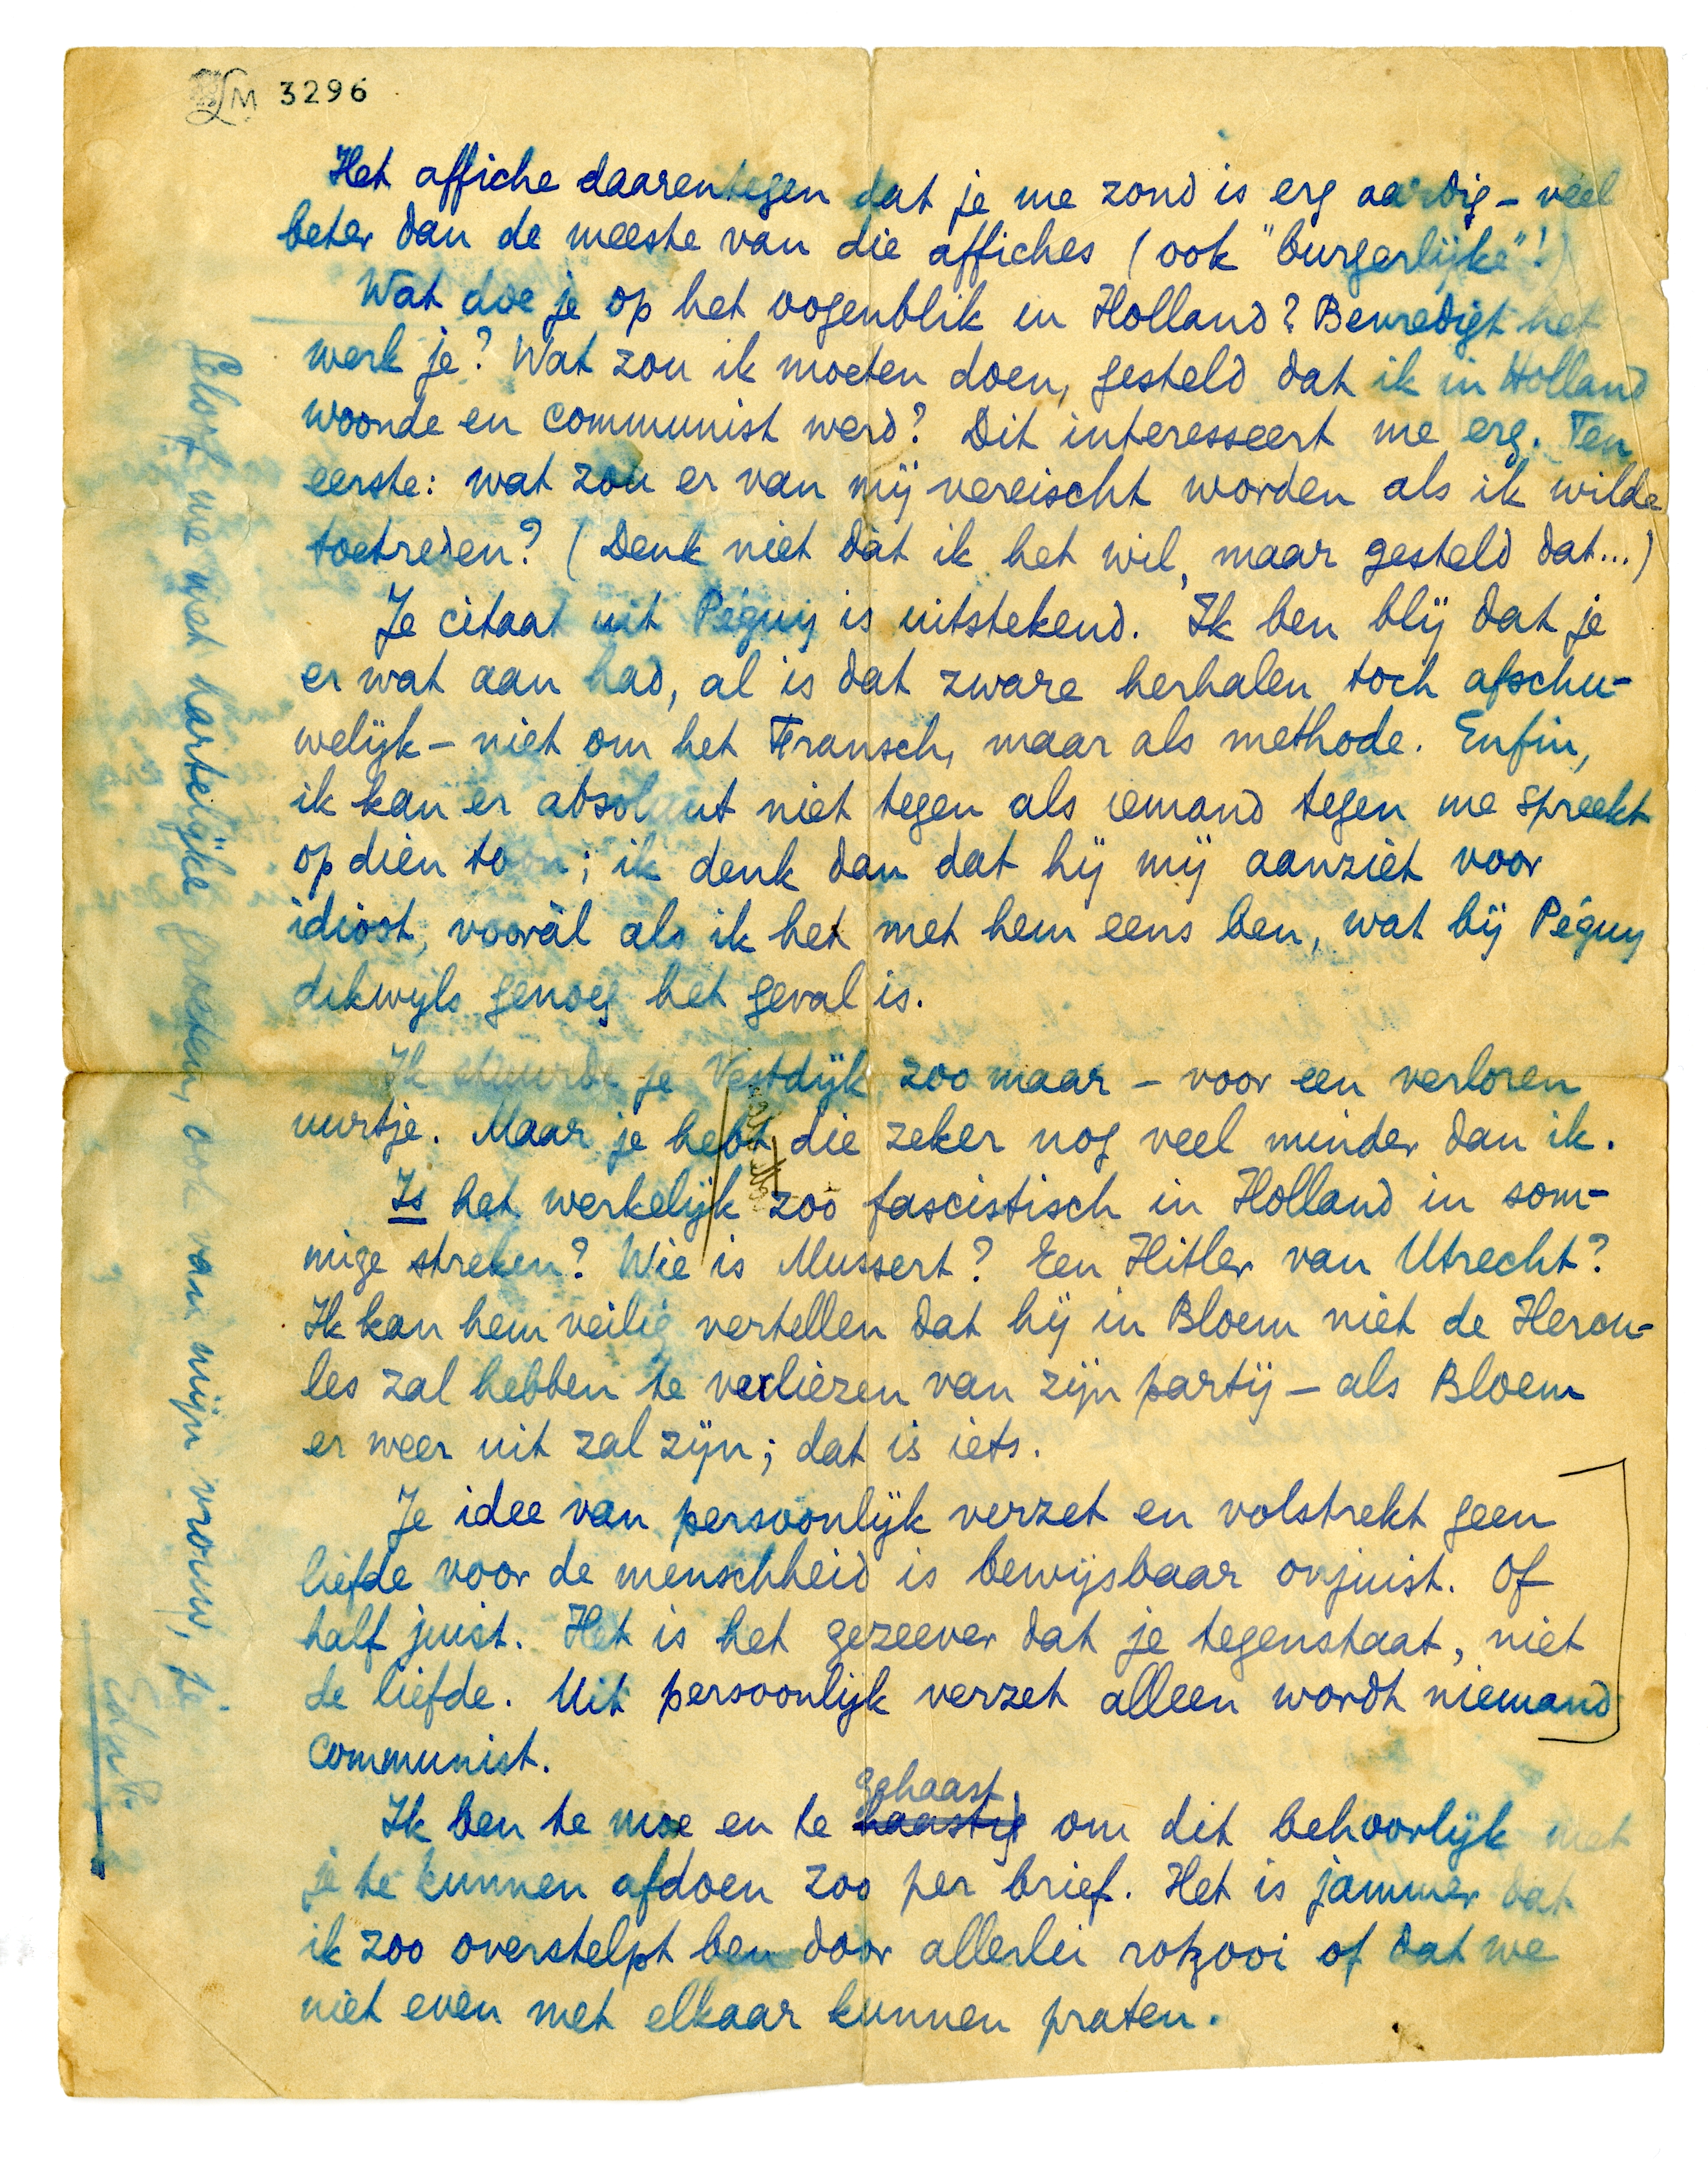 LM 3296
Het affiche daarentegen dat je me zond is erg aardig – véél
beter dan de meeste van die affiches (ook "burgerlijke"!)
Wat doe je op het oogenblik in Holland? Bevredigt het
werk je? Wat zou ik moeten doen, gesteld dat ik in Holland
woonde en communist werd? Dit interesseert me erg. Ten
eerste: wat zou er van mij vereischt worden als ik wilde
toetreden? (Denk niet dàt ik het wil, maar gesteld dat...)
Je citaat uit Péguy is uitstekend. Ik ben blij dat je
er wat aan had, al is dat zware herhalen toch afschu-
welijk – niet om het Fransch, maar als methode. Enfin,
ik kan er absoluut niet tegen als iemand tegen me spreekt
op dien toon; ik denk dan dat hij mij aanziet voor
idioot, vooràl als ik het met hem eens ben, wat bij Péguy
dikwijls genoeg het geval is.
Ik stuurde je Vestdijk zoo maar – voor een verloren
uurtje. Maar je hebt die zeker nog veel minder dan ik.
Is het werkelijk zoo fascistisch in Holland in som-
mige streken? Wie is Mussert? Een Hitler van Utrecht?
Ik kan hem veilig vertellen dat hij in Bloem niet de Hercu-
les zal hebben te verliezen van zijn partij – als Bloem
er weer uit zal zijn; dat is iets.
Je idee van persoonlijk verzet en volstrekt geen
liefde voor de menschheid is bewijsbaar onjuist. Of
half juist. Het is het gezeever dat je tegenstaat, niet
de liefde. Uit persoonlijk verzet alleen wordt niemand
communist.
gehaast
Ik ben te moe en te haastig om dit behoorlijk met
je te kunnen afdoen zoo per brief. Het is jammer dat
ik zoo overstelpt ben door allerlei rotzooi of dat we
niet even met elkaar kunnen praten.
Geloof me met hartelijke groeten, ook van mijn vrouw, je